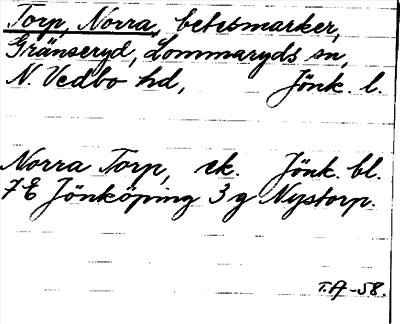 Torp, Norra, betesmarker,
Gränseryd, Lommaryds sn,
N. Vedbo hd, Jönk. l.
Norra Torp, ek. Jönk. bl.
7E Jönköping 3g Nystorp.
T.A-58.